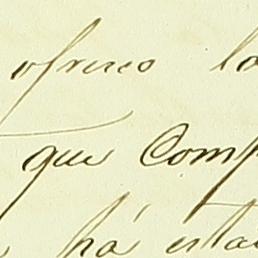 ofrece lo
que Comp
há esta